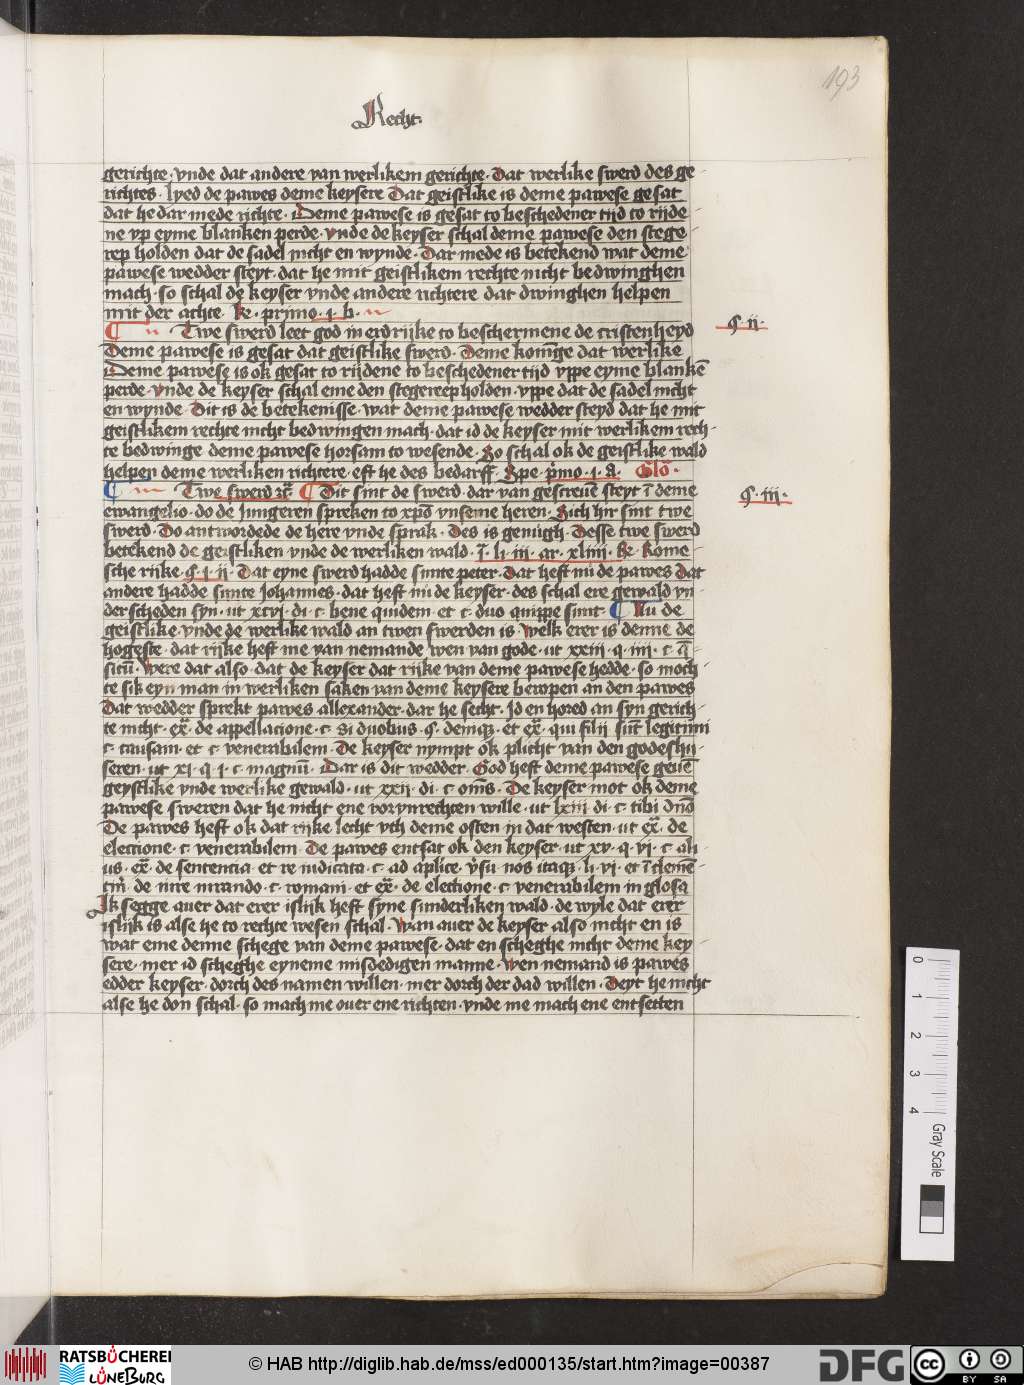 193
Recht·
gerichte· vnde dat andere van werlikem gerichte· Dat werlike swerd des ge
richtes· lyed de pawes deme keysere Dat geistlike is deme pawese gesat
dat he dar mede richte· Deme pawese is gesat to bescheidener tijd to rijde
ne vp eyme blanken perde· vnde de keyser schal deme pawese den stege
rep holden dat de sadel nicht en wynde· Dar mede is betekend wat deme
pawese wedder steyt· dat he mit geistlikem rechte nicht bedwinghen
mach· so schal de keyser vnde andere richtere dat dwinghen helpen
mit der achte· Re· primo· i· b·
¶ Twe swerd leet god in erdrijke to beschermene de cristenheyd
§· ii·
Deme pawese is gesat dat geistlike swerd· Deme koninge dat werlike
Deme pawese is ok gesat to rijdene to beschedener tijd vppe eyme blankē
perde· vnde de keyser schal eme den stegereep holden· vppe dat de sadel nicht
en wynde· Dit is de betekenisse· wat deme pawese wedder steyd dat he mit
geistlikem rechte nicht bedwingen mach· dat id de keyser mit werlikem rech
te bedwinge deme pawese horsam to wesende· So schal ok de geistlike wald
helpen deme werliken richtere· eft he des bedarff· Spe· pͥmo· i· a· Glō·
¶ Twe swerd ꝛcͣ· ¶ Dit sint de swerd· dar van gescreuē steyt ī deme
§· iii·
ewangelio· do de Jungeren spreken to xp̄o vnseme heren· Sich hir sint twe
swerd· Do antwordede de here vnde sprak· Des is genugh· Desse twe swerd
betekend de geistliken vnde de werliken wald· ī· li· iii· ar· xliiii· Re· Rome
sche rijke §· i· ii· Dat eyne swerd hadde sunte peter· Dat heft nu de pawes Dat
andere hadde sunte Johannes· dat heft nu de keyser· des schal ere gewald vn
derscheden syn· ut xcvi· di· c· bene quidem· et c· duo quippe sunt· ¶ Nu de
geistlike· vnde de werlike wald an twen swerden is· welk erer is denne de
hogeste· dat rijke heft me van nemande wen van gode· ut xxiii· q· iiii· c· q̄
sitū· Were dat also· dat de keyser dat rijke van deme pawese hedde· so moch
te sik eyn man in werliken saken van deme keysere beropen an den pawes
Dat wedder sprekt pawes allexander· dar he secht· Jd en hored an syn gerich
te nicht· ex̄· de appellacione· c· si duobus· §· deniqꝫ· et ex̄· qui filij sūt legitimi
c· causam· et c· venerabilem· De keyser nympt ok plicht van den godeshu
seren· ut xi· q· i· c· magnū· Dar is dit wedder· God heft deme pawese geuē
geystlike vnde werlike gewald· ut xxii· di· c· om̄s· De keyser mot ok deme
pawese sweren dat he nicht ene vorvnrechten wille· ut lxiii· di· c· tibi dn̄o
De pawes heft ok dat rijke lecht vth deme osten in dat westen· ut ex̄· de
electione· c· venerabilem· De pawes entsat ok den keyser· ut xv· q· vi· c· ali
us· ex̄· de sententia· et re iudicata· c· ad ap̄lice· v̓su· nos itaqꝫ· li· vi· et ī clemē
tīn· de iure iurando· c· romani· et ex̄· de electione· c· venerabilem in glosa
Jk segge auer dat erer islijk heft syne sunderliken wald· de wyle dat erer
islijk is alse he to rechte wesen schal· Wan auer de keyser also nicht en is
wat eme denne schege van deme pawese· dat en scheghe nicht deme key
sere· mer id scheghe eyneme misdedigen manne· Wen nemand is pawes
edder keyser· dorch des namen willen· mer dorch der dad willen· Deyt he nicht
alse he don schal· so mach me ouer ene richten· vnde me mach ene entsetten
0 1 2 3 4
Gray Scale
RATSBÜCHEREI
LÜNEBURG
© HAB http://diglib.hab.de/mss/ed000135/start.htm?image=00387
DFG
cc BY SA